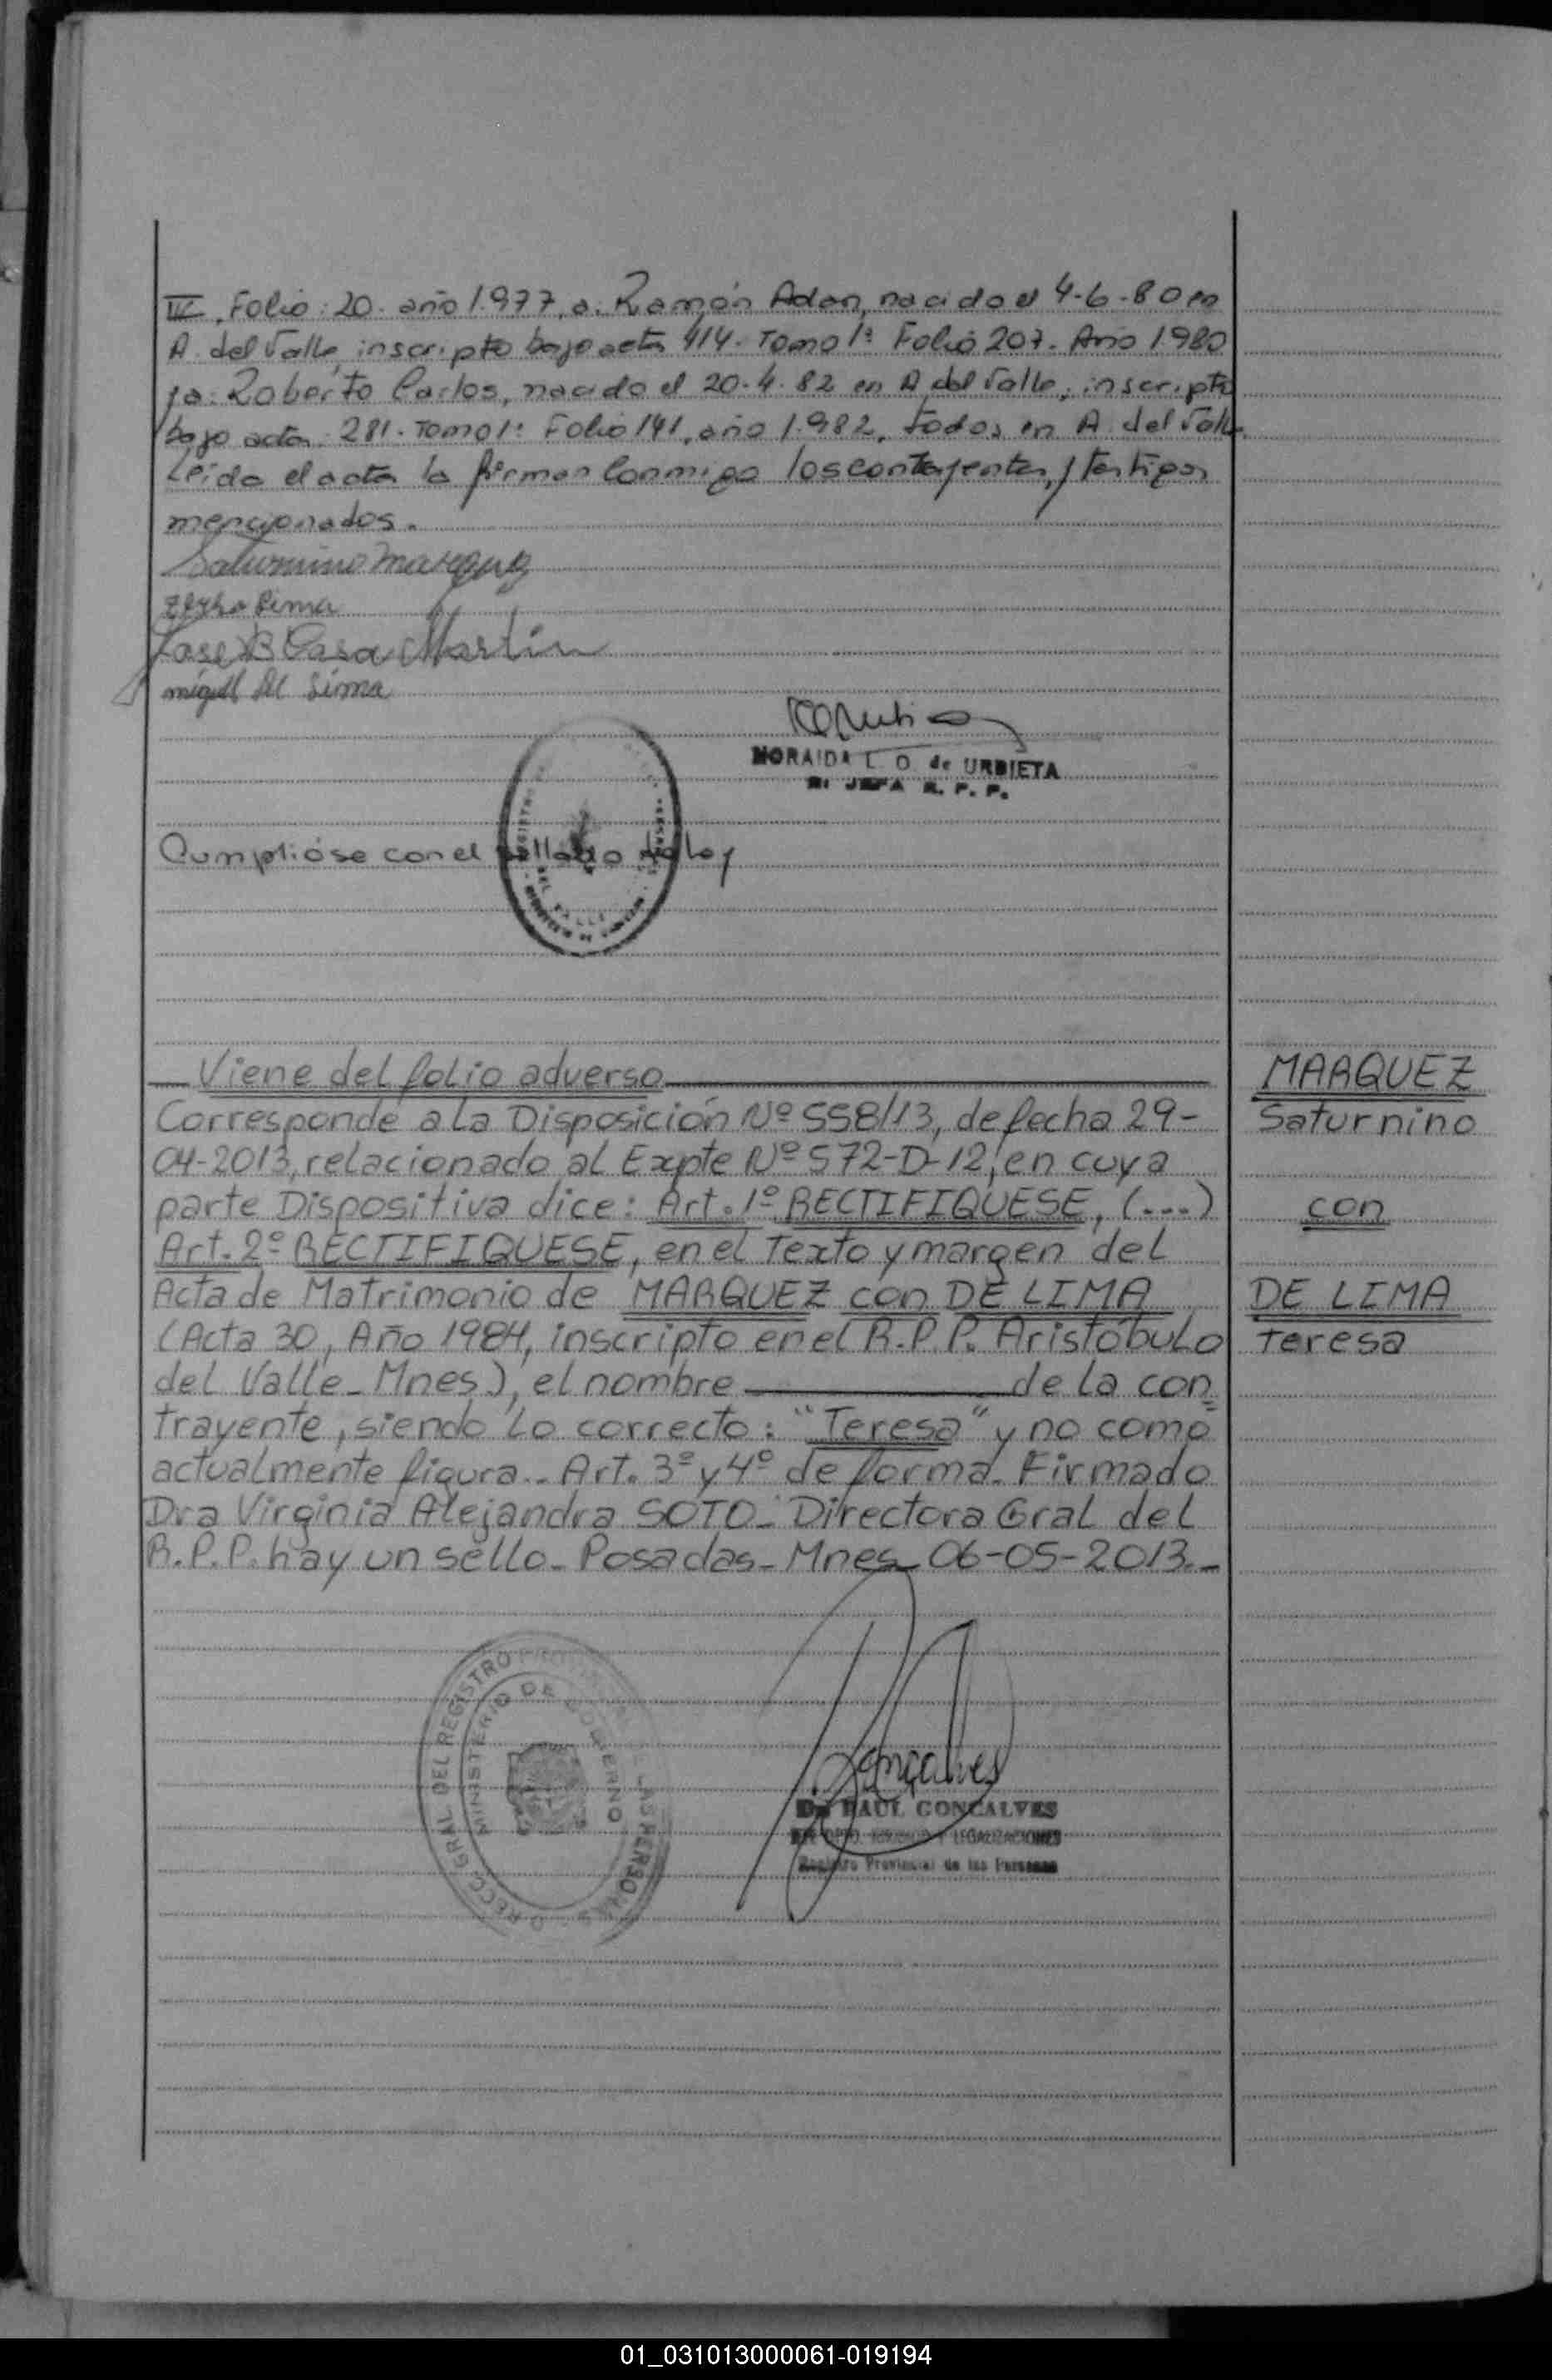 III, Folio: 20. año 1.977, a: Ramón Adan, nacido el 4-6-80 en
A. del Valle, inscripto bajo acta 414. Tomo 1º Folio 207. Año 1980
y a: Roberto Carlos, nacido el 20.4.82 en A del Valle, inscripto
bajo acta: 281. Tomo 1º Folio 141, año 1.982, todos en A. del Valle.
Leida el acta la firman conmigo los contrayentes, y testigos
mencionados.
Saturnino Marquez
Lima
Jose B Casa Martin
miguel de Lima
NORAIDA L. O. de URBIETA
JEFA R. P. P.
Cumplióse con el sellado de Ley
Viene del folio adverso
MARQUEZ
Corresponde a la Disposición Nº 558/13, de fecha 29-
Saturnino
04-2013, relacionado al Expte Nº 572-D-12, en cuya
parte Dispositiva dice: Art. 1º RECTIFIQUESE, (...)
con
Art. 2º RECTIFIQUESE, en el Texto y margen del
Acta de Matrimonio de MARQUEZ con DE LIMA
DE LIMA
(Acta 30, Año 1984, inscripto en el R.P.P. Aristóbulo
Teresa
del Valle - Mnes), el nombre de la con=
trayente, siendo lo correcto: "Teresa" y no como
actualmente figura.- Art. 3º y 4º de forma. Firmado
Dra Virginia Alejandra SOTO - Directora Gral del
R.P.P. hay un sello - Posadas - Mnes 06-05-2013.-
DIRECC. GRAL DEL REGISTRO PROVINCIAL DE LAS PERSONAS
MINISTERIO DE GOBIERNO
Gonçalves
RAUL GONCALVES
LEGALIZACIONES
Registro Provincial de las Personas
01_031013000061-019194